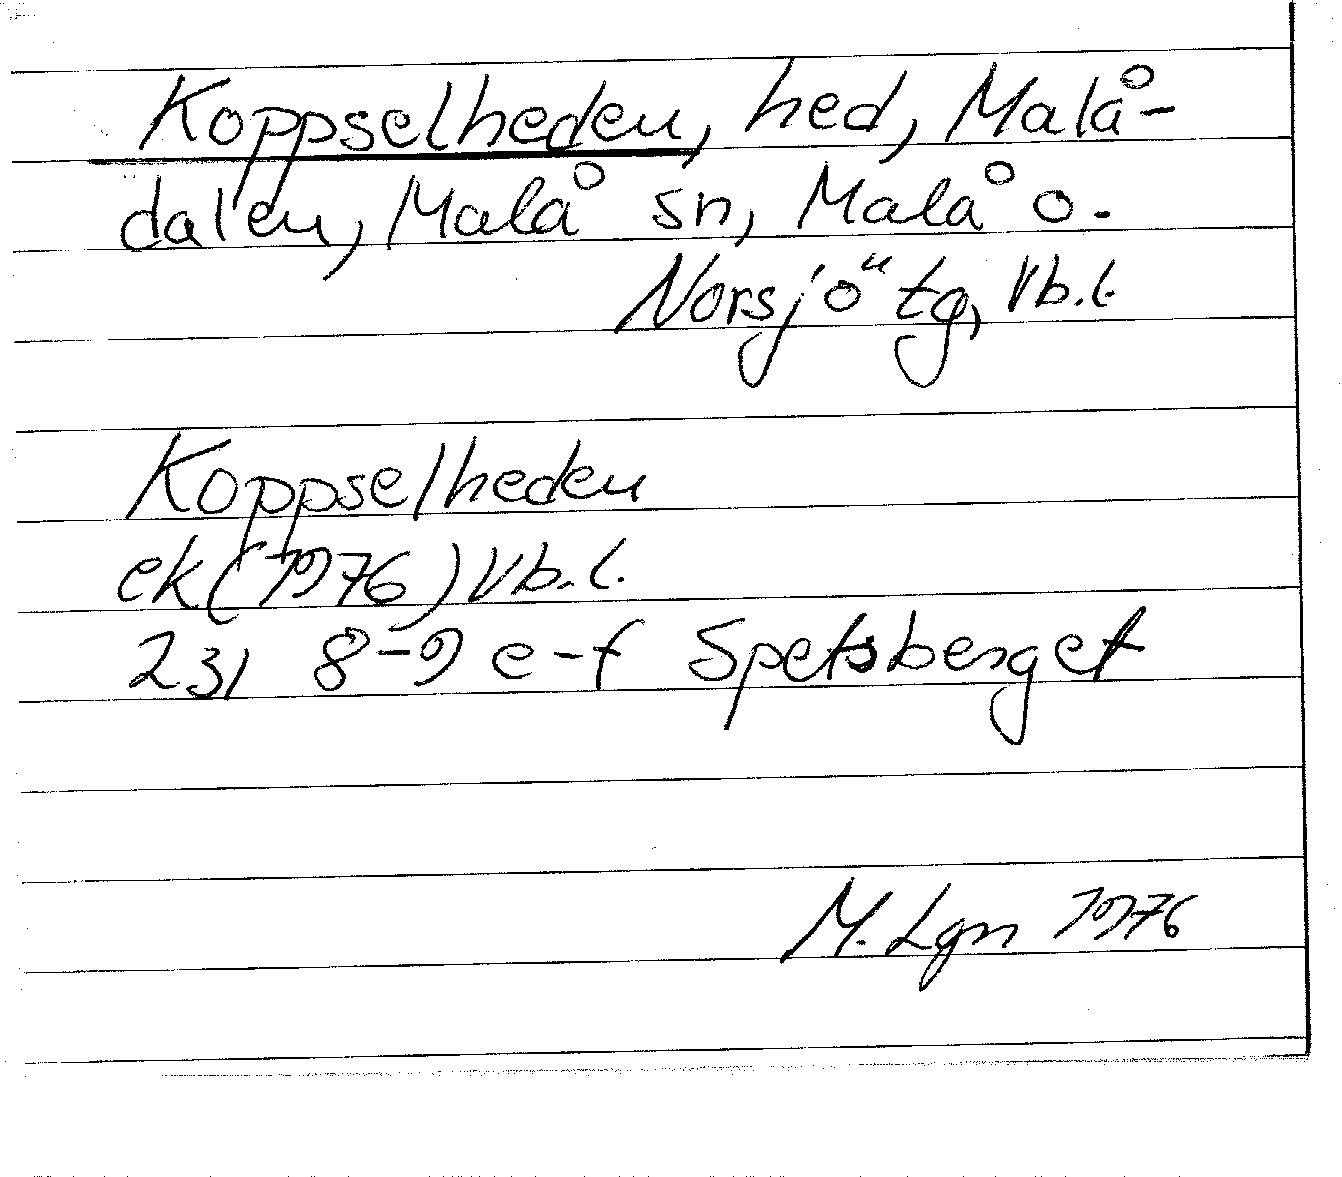 Koppselheden, hed, Malå-
dalen, Malå sn, Malå o.
Norsjö tg, Vb.l.
Koppselheden
ek (1976) Vb.l.
231 8-9 e-f Spetsberget
M. Lgn 1976